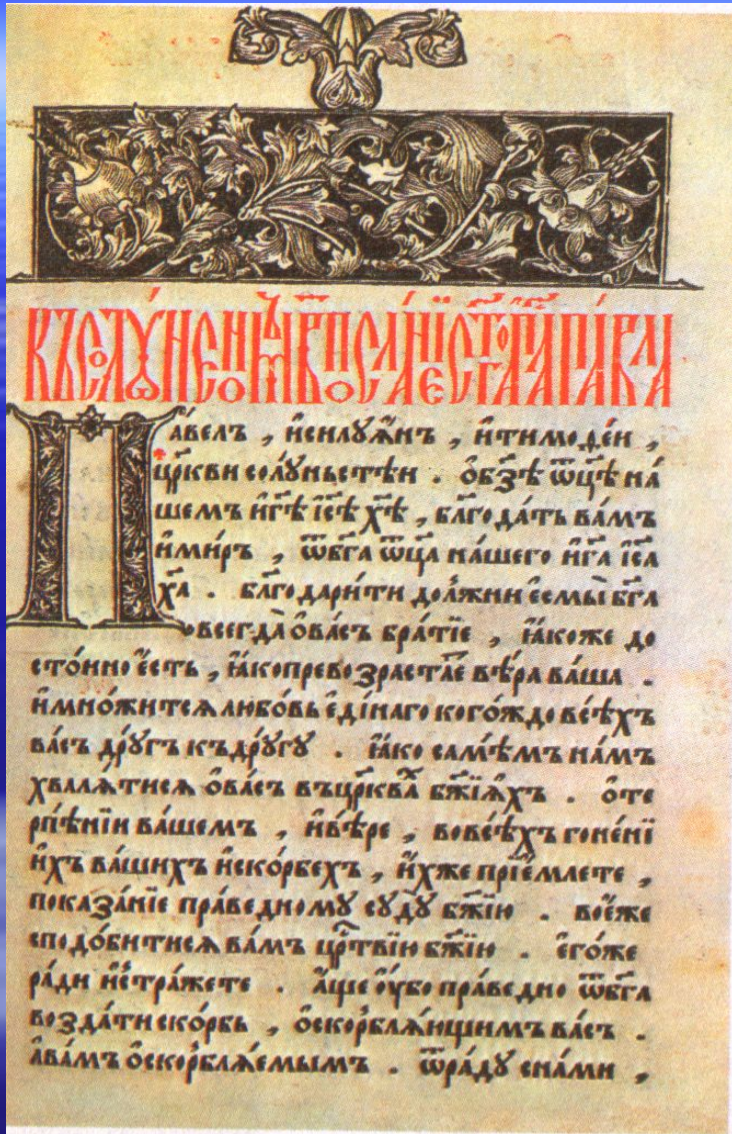 Къ солꙋ́нѧномъ в҃ посла́нїе ст҃го а҆пⷭ҇ла па́вла
Па́велъ , и҆силꙋѧ́нъ , и҆тимоѳе́и ,
цр҃кви солꙋ́ньстѣи . о҆бз҃ѣ ѿц҃ѣ на́
шемъ и҆г҃ѣ і҆с҃ѣ х҃ѣ , бл҃года́ть ва́мъ
и҆ми́ръ , ѿбг҃а ѿц҃а на́шего и҆г҃а і҆с҃а
х҃а . бл҃годари́ти до́лжни є҆смы̀ бг҃а
всегда̀ о҆ва́съ бра́тїе , ꙗ҆́коже до
сто́йно є҆́сть , ꙗ҆́копревозраста́є вѣ́ра ва́ша .
и҆мно́житсѧ любо́вь є҆ди́наго кого́ждо всѣ́хъ
ва́съ дрꙋ́гъ къдрꙋ́гꙋ . ꙗ҆́ко самѣ́мъ на́мъ
хвалѧ́тисѧ о҆ва́съ въцр҃ква́х бж҃їѧхъ . о҆те
рпѣ́нїи ва́шемъ , и҆вѣ́ре , вовсѣ́хъ гоне́нї
и҆хъ ва́шихъ и҆ско́рбехъ , и҆́хже прїе́млете ,
показа́нїе пра́ведномꙋ сꙋдꙋ̀ бж҃їю . вое́же
сподо́битисѧ ва́мъ црⷭ҇твїю бж҃їю . є҆го́же
ра́ди и҆стра́жете . а҆́ще ᲂу҆́бо пра́ведно ѿбг҃а
возда́ти ско́рбь , ѡ҆скорблѧ́ющимъ ва́съ .
а҆ва́мъ ѡ҆скорблѧ́емымъ . ѿра́дꙋ сна́ми ,